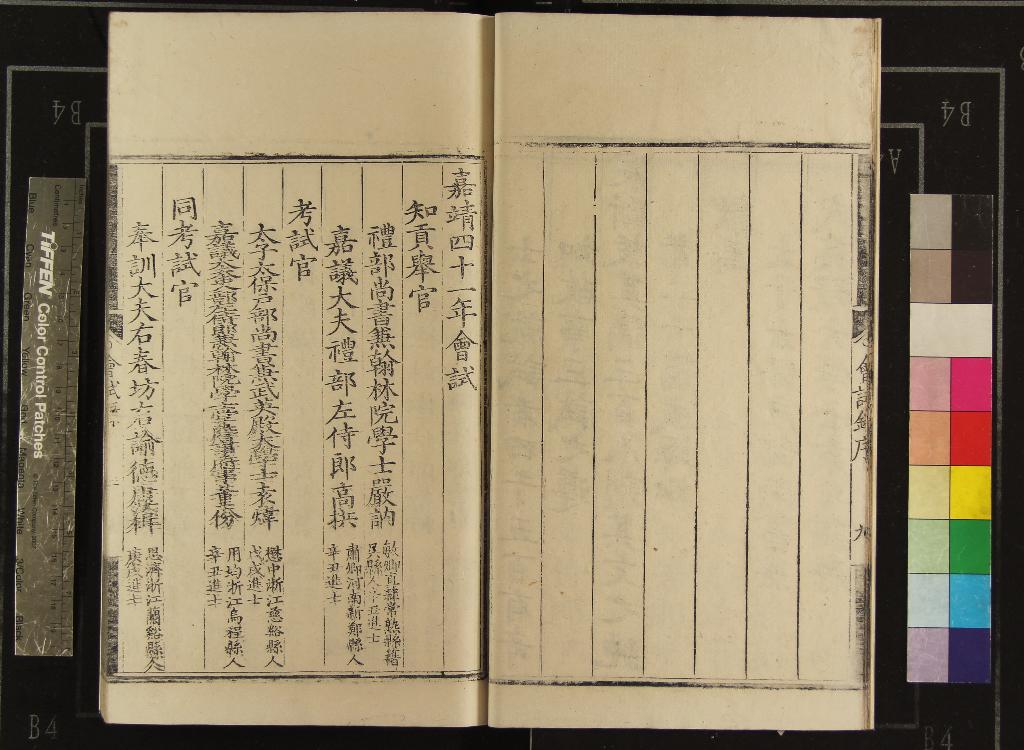 會試錄序
九
嘉靖四十一年會試
知貢舉官
禮部尚書兼翰林院學士嚴訥
敏卿直隸常熟縣籍
吳縣人辛丑進士
嘉議大夫禮部左侍郎高拱
肅卿河南新鄭縣人
辛丑進士
考試官
太子太保戶部尚書兼武英殿大學士袁煒
懋中浙江慈谿縣人
戊戌進士
嘉議大夫吏部左侍郎兼翰林院學士掌詹事府事董份
用均浙江烏程縣人
辛丑進士
同考試官
奉訓大夫右春坊右諭德
思濟浙江蘭谿縣人
庚戌進士
會試
TIFFEN Color Control Patches
Blue
Green
Yellow
Magenta
White
Black
Centimetres
Inches
B4
B4
A
B4
B4